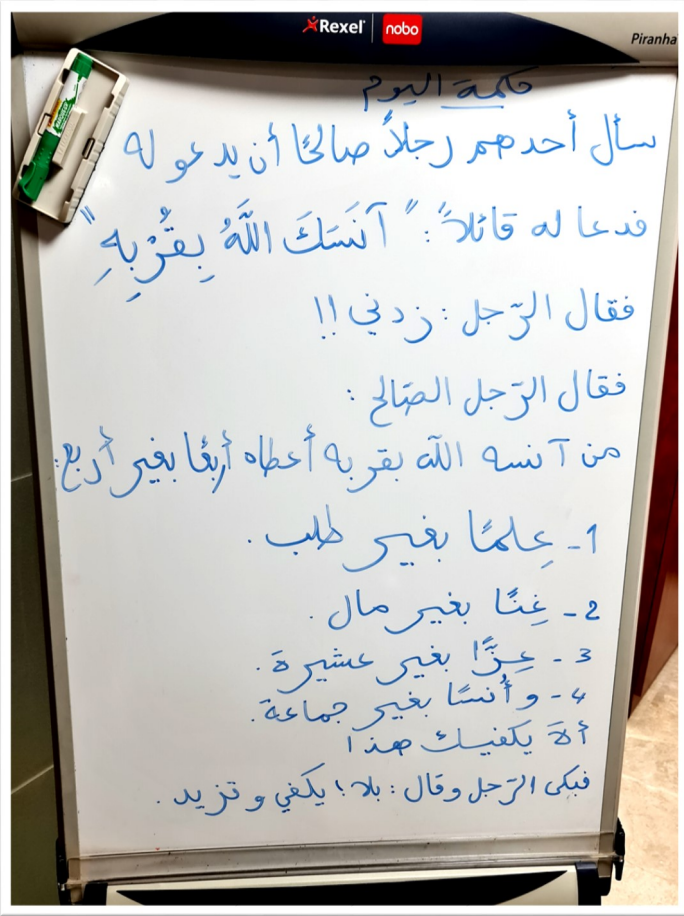 Rexel nobo
Piranha
حكمة اليوم
سأل أحدهم رجلاً صالحًا أن يدعو له
فدعا له قائلاً: "آنَسَكَ اللَّهُ بِقُرْبِهِ"
فقال الرّجل: زدني!!
فقال الرّجل الصّالح:
من آنسه اللّه بقربه أعطاه أربعًا بغير أربع:
1- عِلمًا بغير طلب.
2- غِنًا بغير مال.
3- عِزًّا بغير عشيرة.
4- وأُنسًا بغير جماعة.
يكفيك هذا
فبكى الرّجل وقال: بلا؛ يكفي وتزيد.